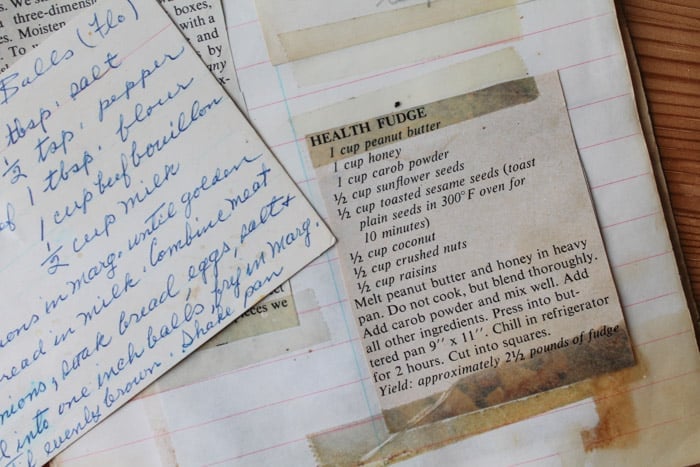 three-dimensio
Moisten
To
boxes,
with a
and
by
Balls (Flo)
tbsp. salt
½ tsp. pepper
of 1 tbsp. flour
1 cup beef bouillon
½ cup milk
ons in marg. until golden
read in milk. Combine meat
nions, soak bread eggs, salt +
into one inch balls, fry in marg.
evenly brown. Shake pan
ieces we
HEALTH FUDGE
1 cup peanut butter
1 cup honey
1 cup carob powder
½ cup sunflower seeds
½ cup toasted sesame seeds (toast
plain seeds in 300°F oven for
10 minutes)
½ cup coconut
½ cup crushed nuts
½ cup raisins
Melt peanut butter and honey in heavy
pan. Do not cook, but blend thoroughly.
Add carob powder and mix well. Add
all other ingredients. Press into but-
tered pan 9" x 11". Chill in refrigerator
for 2 hours. Cut into squares.
Yield: approximately 2½ pounds of fudge